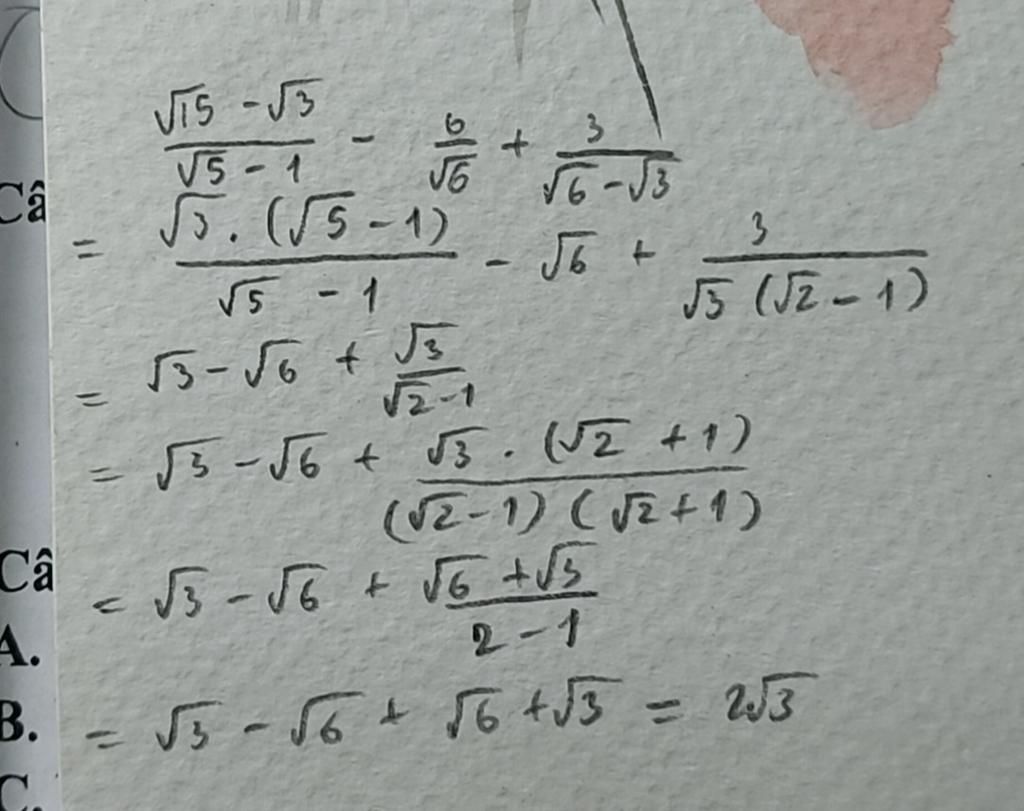 Câ
(√15 - √3)/(√5 - 1) - 6/√6 + 3/(√6 - √3)
= √3 . (√5 - 1)/(√5 - 1) - √6 + 3/(√3 (√2 - 1))
= √3 - √6 + √3/(√2 - 1)
= √3 - √6 + √3 . (√2 + 1)/((√2 - 1) (√2 + 1))
Câ
= √3 - √6 + (√6 + √3)/(2 - 1)
A.
= √3 - √6 + √6 + √3 = 2√3
B.
C.